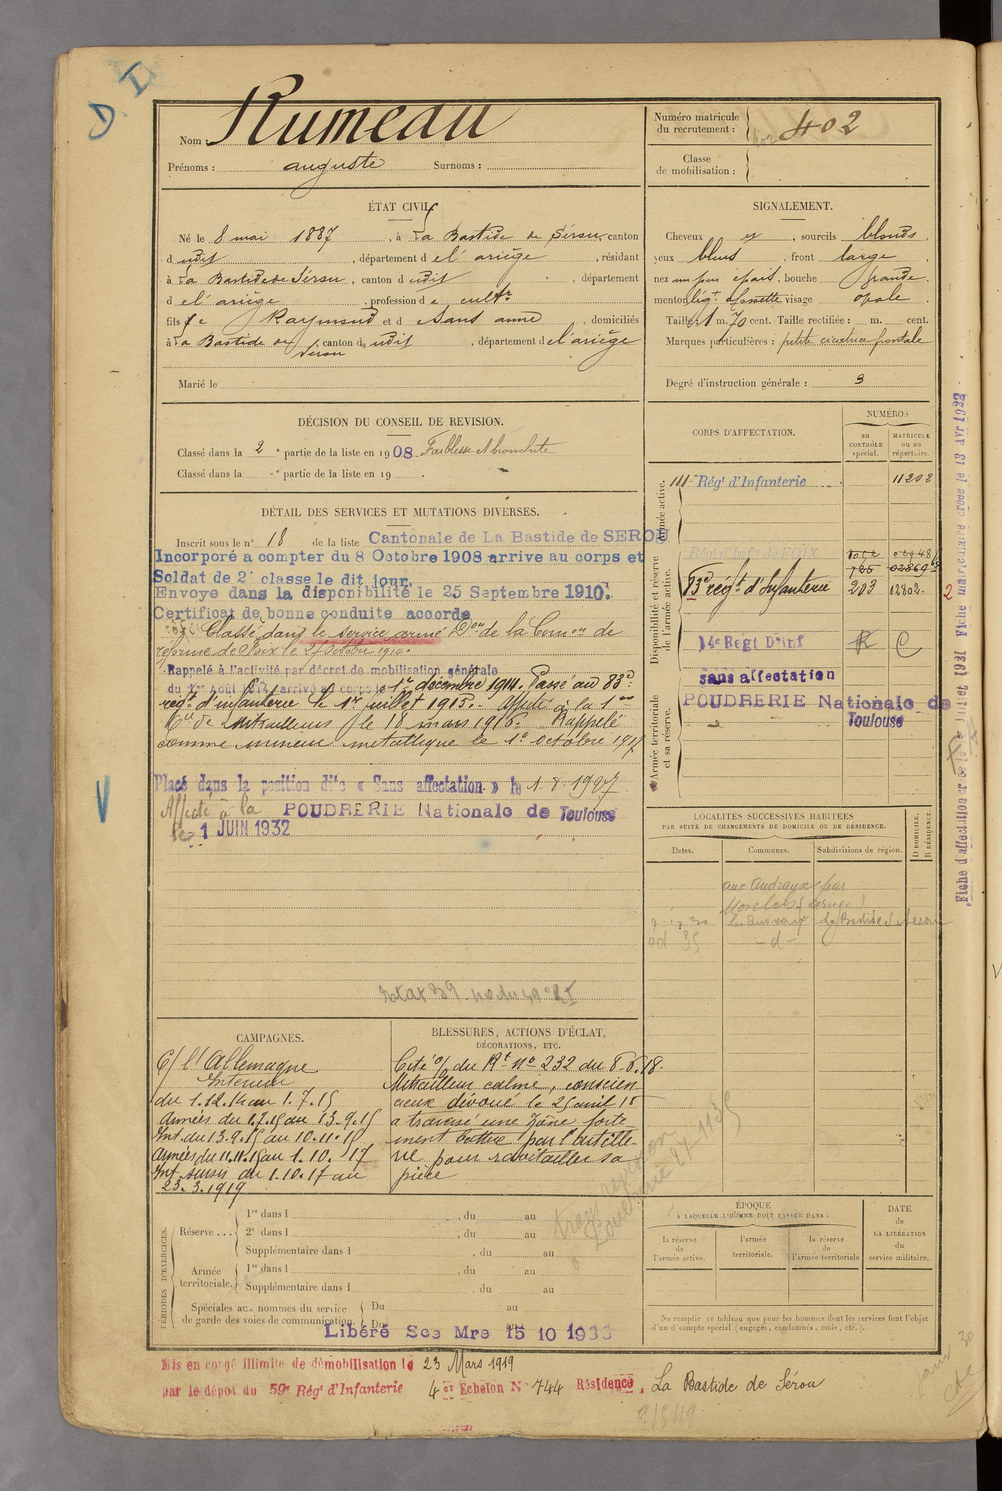 D I
Nom : Rumeau
Prénoms : auguste Surnoms :
Numéro matricule
du recrutement : 402
Classe
de mobilisation :
ÉTAT CIVIL
Né le 8 mai 1887, à La Bastide de Sérou, canton
d udit, département de l'ariège, résidant
à La Bastide de Sérou, canton d udit, département
de l'ariège, profession de cultr
fils de Raymond et de Sans anne, domiciliés
à La Bastide de Sérou, canton d udit, département de l'ariège
Marié le
SIGNALEMENT.
Cheveux et, sourcils blonds,
yeux bleus, front large
nez un peu épais, bouche grande,
menton légt fossette visage ovale.
Taille : 1 m. 70 cent. Taille rectifiée : m. cent.
Marques particulières : petite cicatrice frontale
Degré d'instruction générale : 3
DÉCISION DU CONSEIL DE REVISION.
Classé dans la 2e partie de la liste en 1908 Faiblesse et bronchite
Classé dans la -e partie de la liste en 19 .
DÉTAIL DES SERVICES ET MUTATIONS DIVERSES.
Inscrit sous le n° 18 de la liste Cantonale de La Bastide de SEROU
Incorporé a compter du 8 Octobre 1908 arrive au corps et
Soldat de 2e classe le dit jour.
Envoye dans la disponibilité le 25 Septembre 1910.
Certificat de bonne conduite accorde
Classé dans le service armé Don de la Comon de
réforme de Foix le 27 Octobre 1914.
Rappelé à l'activité par décret de mobilisation générale
du 1er Août 1914, arrivé au corps le 1er décembre 1914. Passé au 83e
régt d'infanterie le 1er juillet 1915. Affecté à la 1re
Cie de mitrailleurs le 18 mars 1916. Rappelé
comme mineur métallique le 1er Octobre 1917
Placé dans la position dite « Sans affectation » le 1.8.1927
Affecté à la POUDRERIE Nationale de Toulouse
le 1 JUIN 1932
CORPS D'AFFECTATION.
NUMÉROS
au
CONTRÔLE
spécial.
MATRICULE
ou au
répertoire.
Armée active.
Régt d'Infanterie 11202
Disponibilité et réserve
de l'armée active.
Régt d'Inf. de FOIX
83e régt d'Infanterie 203 12802
14e Regt D'inf R C
sans affectation
Armée territoriale
et sa réserve.
POUDRERIE Nationale de
Toulouse
LOCALITÉS SUCCESSIVES HABITÉES
PAR SUITE DE CHANGEMENTS DE DOMICILE OU DE RÉSIDENCE.
Dates. Communes. Subdivisions de région. D DOMICILE. R RÉSIDENCE.
-d-
CAMPAGNES.
C/ l'Allemagne
Intérieur
du 1.12.14 au 1.7.15
Armées du 2.7.15 au 13.9.15
Int. du 13.9.15 au 10.11.15
Armées du 11.11.15 au 1.10.17
Int. sursis du 1.10.17 au
23.3.1919
BLESSURES, ACTIONS D'ÉCLAT,
DÉCORATIONS, ETC.
Cité o/ du Rt n° 232 du 8.6.18.
Mitrailleur calme, conscien
cieux dévoué le 25 avril 18
a traversé une zône forte
ment battue par l'artille-
rie pour ravitailler sa
pièce
PÉRIODES D'EXERCICES.
Réserve ... 1re dans l , du au
2e dans l , du au
Supplémentaire dans l , du au
Armée
territoriale. 1re dans l , du au
Supplémentaire dans l , du au
Spéciales aux hommes du service
de garde des voies de communication. Du au
Du au
Libéré Sce Mre 15 10 1936
ÉPOQUE
À LAQUELLE L'HOMME DOIT PASSER DANS :
la réserve
de
l'armée active.
l'armée
territoriale.
la réserve
de
l'armée territoriale
DATE
de
LA LIBÉRATION
du
service militaire.
Ne remplir ce tableau que pour les hommes dont les services font l'objet
d'un décompte spécial (engagés, condamnés, omis, etc.).
Mis en congé illimité de démobilisation le 23 Mars 1919
par le dépot du 59e Régt d'Infanterie 4e Echelon N° 744 Résidence, La Bastide de Sérou